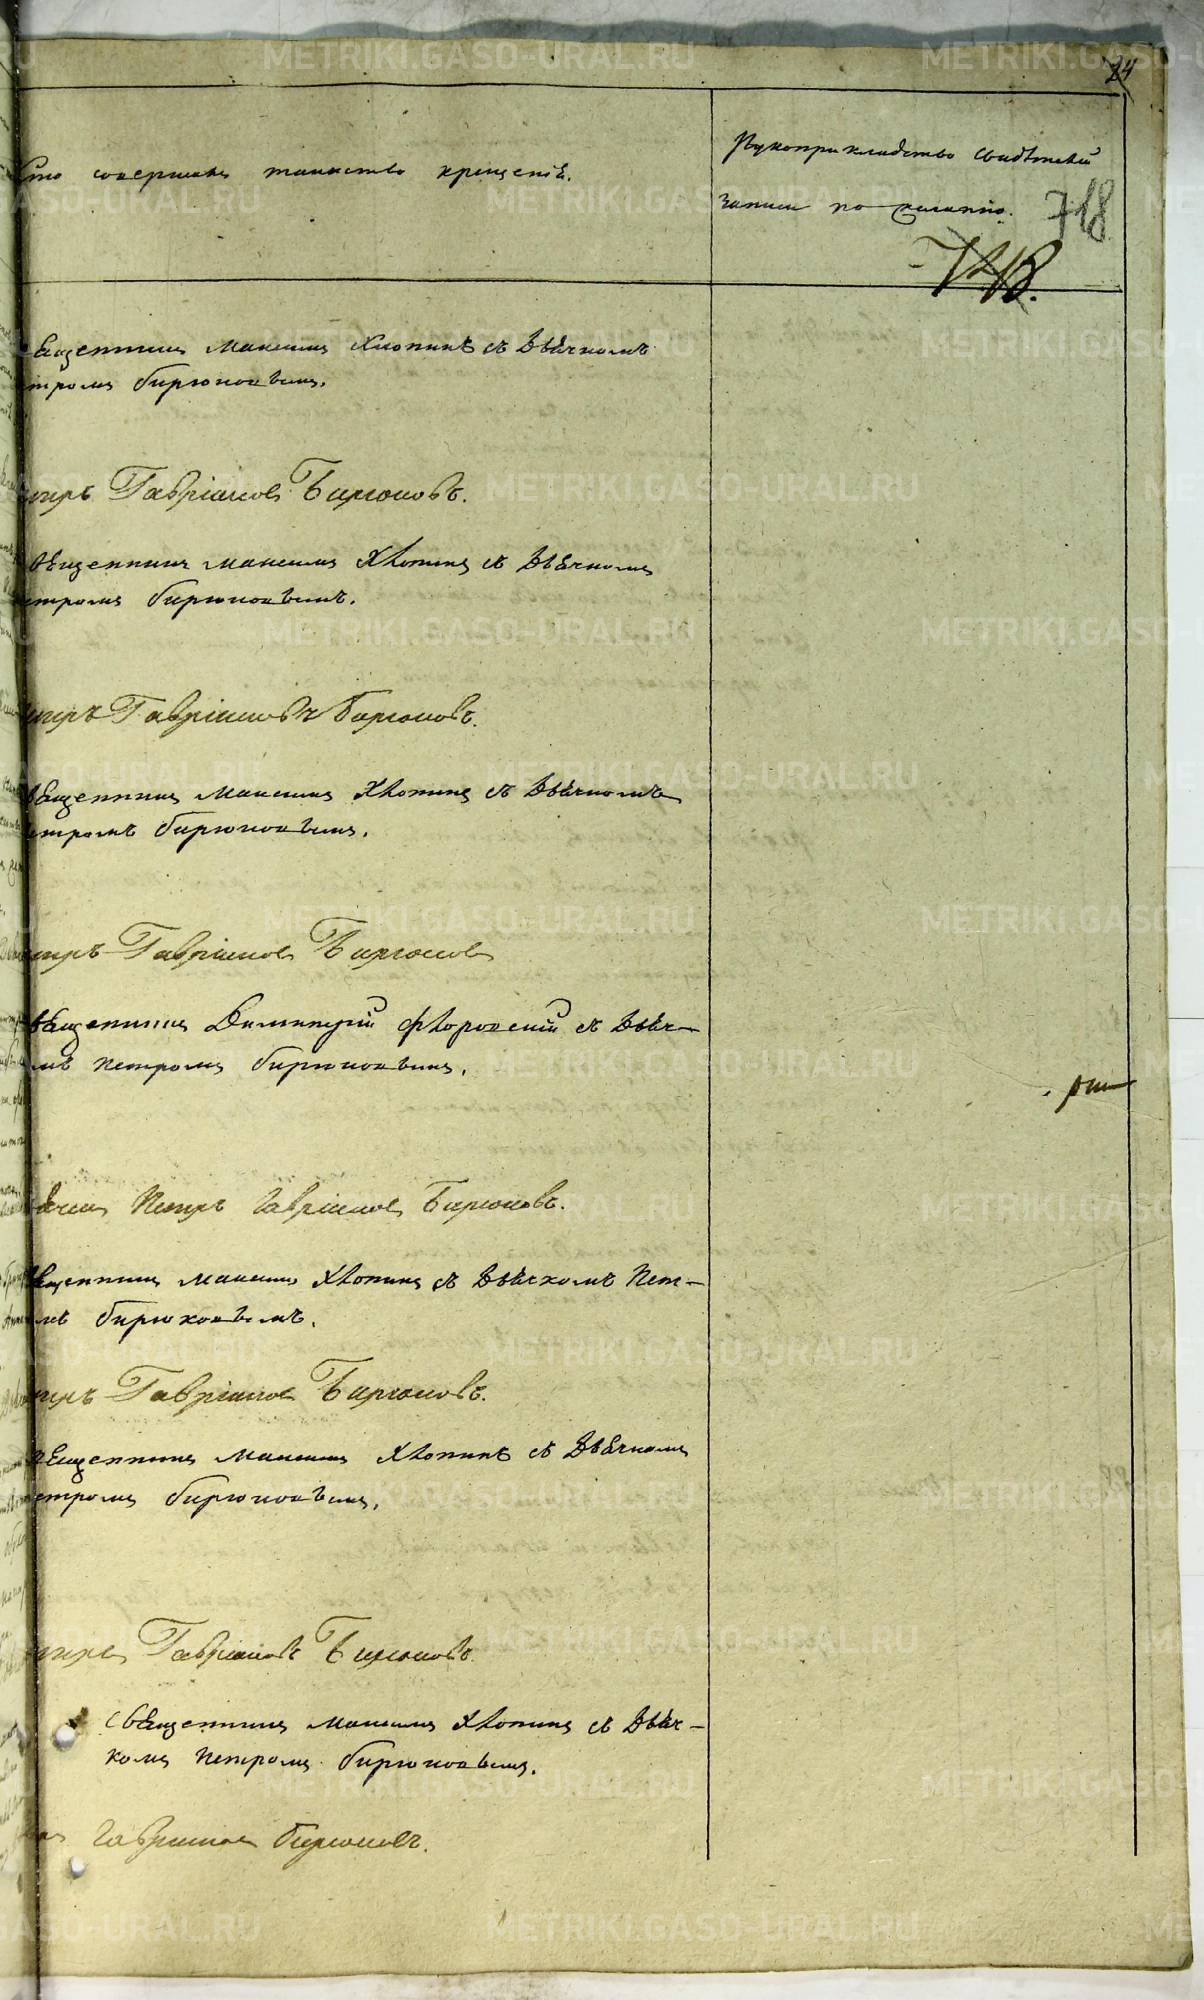 24
Кто совершалъ таинство крещенія.
Рукоприкладство свидѣтелей
записи по желанію.
718
Священникъ Максимъ Хлопинъ съ Дьячкомъ
Петромъ Бирюковымъ.
Петръ Гавріиловъ Бирюковъ.
Священникъ Максимъ Хлопинъ съ Дьячкомъ
Петромъ Бирюковымъ.
Петръ Гавріиловъ Бирюковъ.
Священникъ Максимъ Хлопинъ съ Дьячкомъ
Петромъ Бирюковымъ.
Петръ Гавріиловъ Бирюковъ
Священникъ Димитрій Флоровскій съ Дьяч-
комъ Петромъ Бирюковымъ.
Дьячекъ Петръ Гавріиловъ Бирюковъ.
Священникъ Максимъ Хлопинъ съ Дьячкомъ Пет-
ромъ Бирюковымъ.
Петръ Гавріиловъ Бирюковъ.
Священникъ Максимъ Хлопинъ съ Дьячкомъ
Петромъ Бирюковымъ.
Петръ Гавріиловъ Бирюковъ.
Священникъ Максимъ Хлопинъ съ Дьяч-
комъ Петромъ Бирюковымъ.
Гавріиловъ Бирюковъ.
METRIKI.GASO-URAL.RU